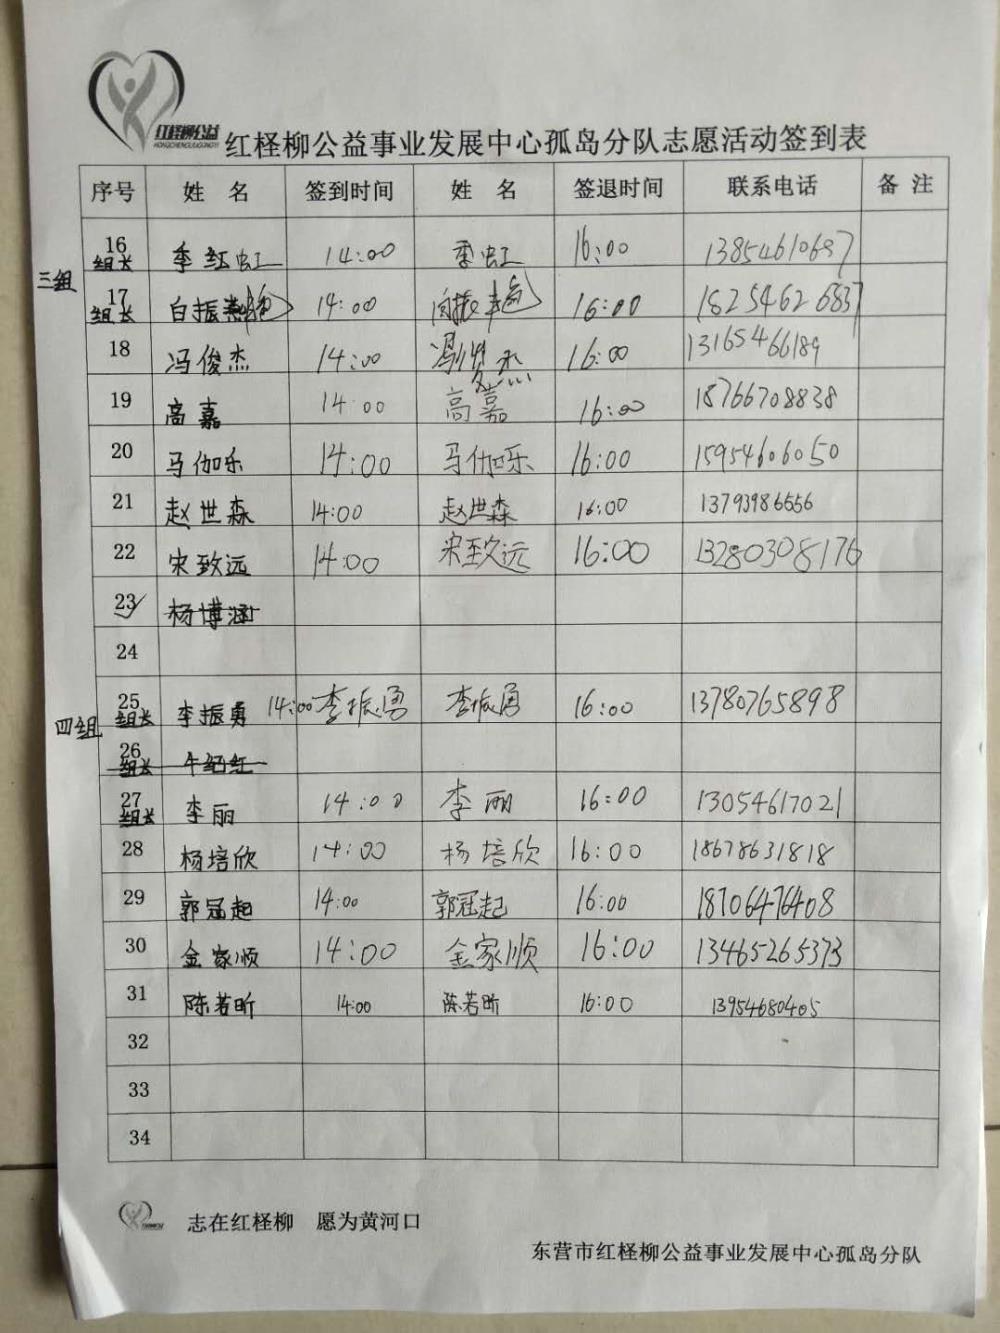 红柽柳公益
HONGCHENGLIUGONGYI
红柽柳公益事业发展中心孤岛分队志愿活动签到表
序号 姓 名 签到时间 姓 名 签退时间 联系电话 备 注
三组
16 组长 季红虹 14:00 季虹 16:00 13854610697
17 组长 白振燕 14:00 16:00 18254626837
18 冯俊杰 14:00 冯俊杰 16:00 13165466189
19 高嘉 14:00 高嘉 16:00 18766708838
20 马伽乐 14:00 马伽乐 16:00 15954606050
21 赵世森 14:00 赵世森 16:00 13793986556
22 宋致远 14:00 宋致远 16:00 13280308176
23 杨博涵
24
四组
25 组长 李振勇 14:00 李振勇 李振勇 16:00 13780765898
26 组长 牛纪红
27 组长 李丽 14:00 李丽 16:00 13054617021
28 杨培欣 14:00 杨培欣 16:00 18678631818
29 郭冠起 14:00 郭冠起 16:00 18706476408
30 金家顺 14:00 金家顺 16:00 13465265373
31 陈若昕 14:00 陈若昕 16:00 13954680405
32
33
34
志在红柽柳 愿为黄河口
东营市红柽柳公益事业发展中心孤岛分队